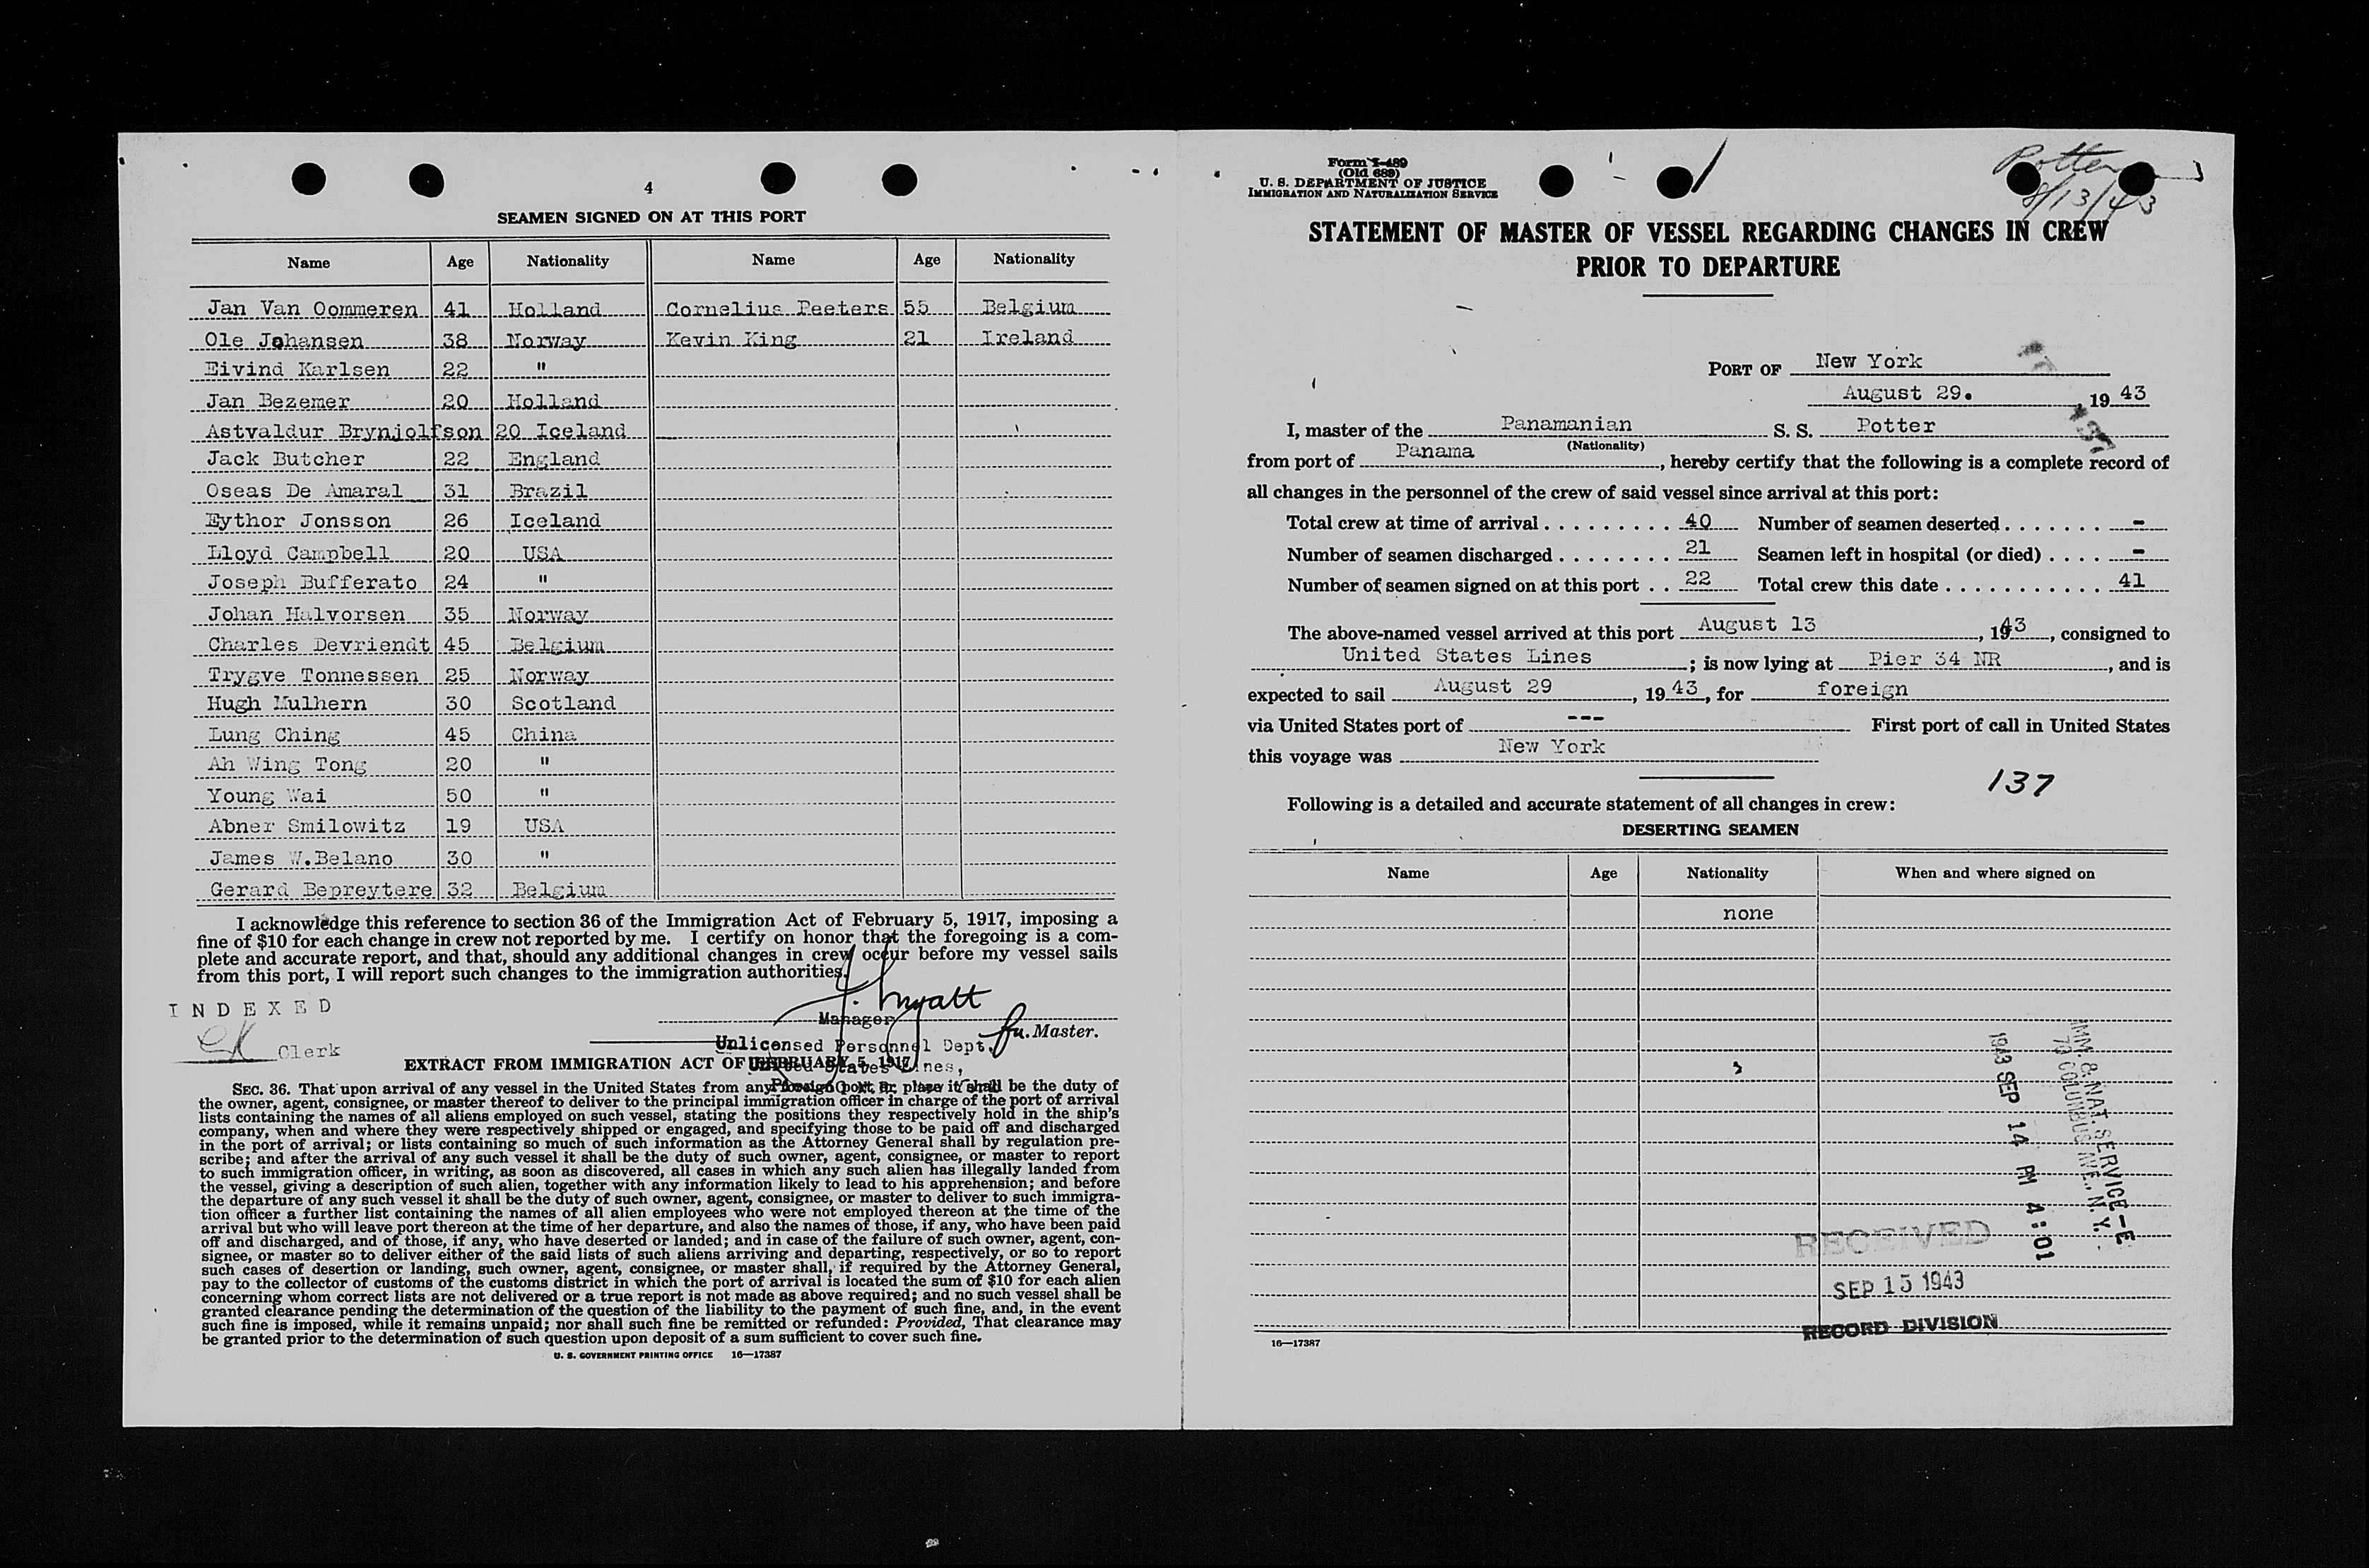 4
SEAMEN SIGNED ON AT THIS PORT
Name Age Nationality Name Age Nationality
Jan Van Oommeren 41 Holland Cornelius Peeters 55 Belgium
Ole Johansen 38 Norway Kevin King 21 Ireland
Eivind Karlsen 22 "
Jan Bezemer 20 Holland
Astvaldur Brynjolfson 20 Iceland
Jack Butcher 22 England
Oseas De Amaral 31 Brazil
Eythor Jonsson 26 Iceland
Lloyd Campbell 20 USA
Joseph Bufferato 24 "
Johan Halvorsen 35 Norway
Charles Devriendt 45 Belgium
Trygve Tonnessen 25 Norway
Hugh Mulhern 30 Scotland
Lung Ching 45 China
Ah Wing Tong 20 "
Young Wai 50 "
Abner Smilowitz 19 USA
James W.Belano 30 "
Gerard Bepreytere 32 Belgium
I acknowledge this reference to section 36 of the Immigration Act of February 5, 1917, imposing a
fine of $10 for each change in crew not reported by me. I certify on honor that the foregoing is a com-
plete and accurate report, and that, should any additional changes in crew occur before my vessel sails
from this port, I will report such changes to the immigration authorities.
INDEXED
Clerk
Manager
Master.
Unlicensed Personnel Dept.
EXTRACT FROM IMMIGRATION ACT OF FEBRUARY 5, 1917
United States Lines,
SEC. 36. That upon arrival of any vessel in the United States from any foreign port or place it shall be the duty of
the owner, agent, consignee, or master thereof to deliver to the principal immigration officer in charge of the port of arrival
lists containing the names of all aliens employed on such vessel, stating the positions they respectively hold in the ship's
company, when and where they were respectively shipped or engaged, and specifying those to be paid off and discharged
in the port of arrival; or lists containing so much of such information as the Attorney General shall by regulation pre-
scribe; and after the arrival of any such vessel it shall be the duty of such owner, agent, consignee, or master to report
to such immigration officer, in writing, as soon as discovered, all cases in which any such alien has illegally landed from
the vessel, giving a description of such alien, together with any information likely to lead to his apprehension; and before
the departure of any such vessel it shall be the duty of such owner, agent, consignee, or master to deliver to such immigra-
tion officer a further list containing the names of all alien employees who were not employed thereon at the time of the
arrival but who will leave port thereon at the time of her departure, and also the names of those, if any, who have been paid
off and discharged, and of those, if any, who have deserted or landed; and in case of the failure of such owner, agent, con-
signee, or master so to deliver either of the said lists of such aliens arriving and departing, respectively, or so to report
such cases of desertion or landing, such owner, agent, consignee, or master shall, if required by the Attorney General,
pay to the collector of customs of the customs district in which the port of arrival is located the sum of $10 for each alien
concerning whom correct lists are not delivered or a true report is not made as above required; and no such vessel shall be
granted clearance pending the determination of the question of the liability to the payment of such fine, and, in the event
such fine is imposed, while it remains unpaid; nor shall such fine be remitted or refunded: Provided, That clearance may
be granted prior to the determination of such question upon deposit of a sum sufficient to cover such fine.
U. S. GOVERNMENT PRINTING OFFICE 16—17387
Form I-489
(Old 689)
U. S. DEPARTMENT OF JUSTICE
IMMIGRATION AND NATURALIZATION SERVICE
Potter
8/13/43
STATEMENT OF MASTER OF VESSEL REGARDING CHANGES IN CREW
PRIOR TO DEPARTURE
PORT OF New York
August 29. , 19 43
I, master of the Panamanian S. S. Potter
(Nationality)
from port of Panama , hereby certify that the following is a complete record of
all changes in the personnel of the crew of said vessel since arrival at this port:
Total crew at time of arrival . . . . . . . . . 40 Number of seamen deserted . . . . . . . -
Number of seamen discharged . . . . . . . . 21 Seamen left in hospital (or died) . . . . -
Number of seamen signed on at this port . . 22 Total crew this date . . . . . . . . . . . 41
The above-named vessel arrived at this port August 13 , 1943 , consigned to
United States Lines ; is now lying at Pier 34 NR , and is
expected to sail August 29 , 19 43, for foreign
via United States port of --- First port of call in United States
this voyage was New York
137
Following is a detailed and accurate statement of all changes in crew:
DESERTING SEAMEN
Name Age Nationality When and where signed on
none
IMM. & NAT. SERVICE-E
70 COLUMBUS AVE., N. Y.
1943 SEP 14 PM 4:01
RECEIVED
SEP 15 1943
RECORD DIVISION
16—17387